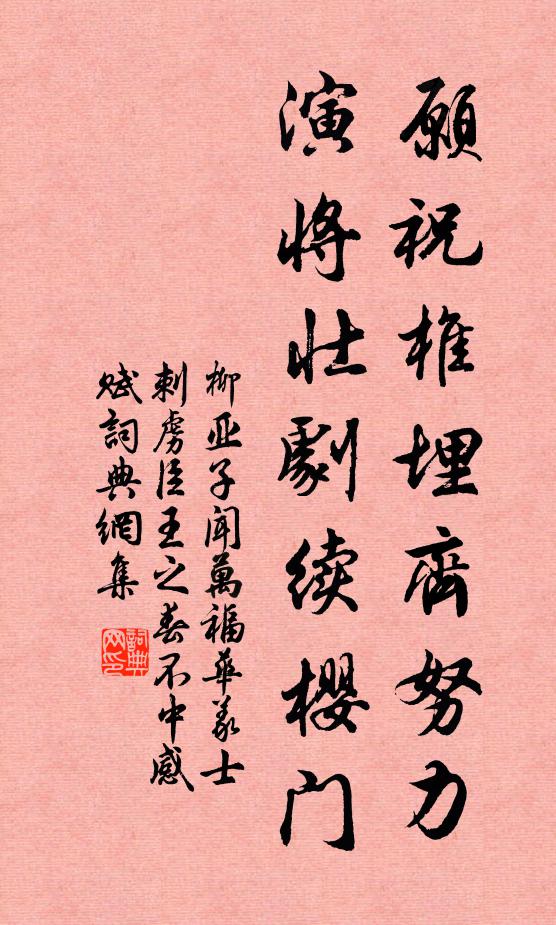 願祝椎埋齊努力
演將壯劇续櫻门
柳亚子闻萬福華義士
刺虜臣王之春不中感
赋詞典網集
詞典网印